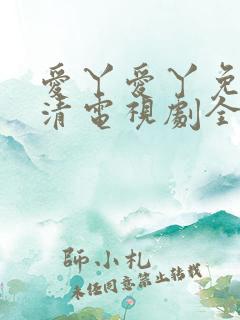 愛丫愛丫免
清電視劇全
師小札
未經同意禁止轉載